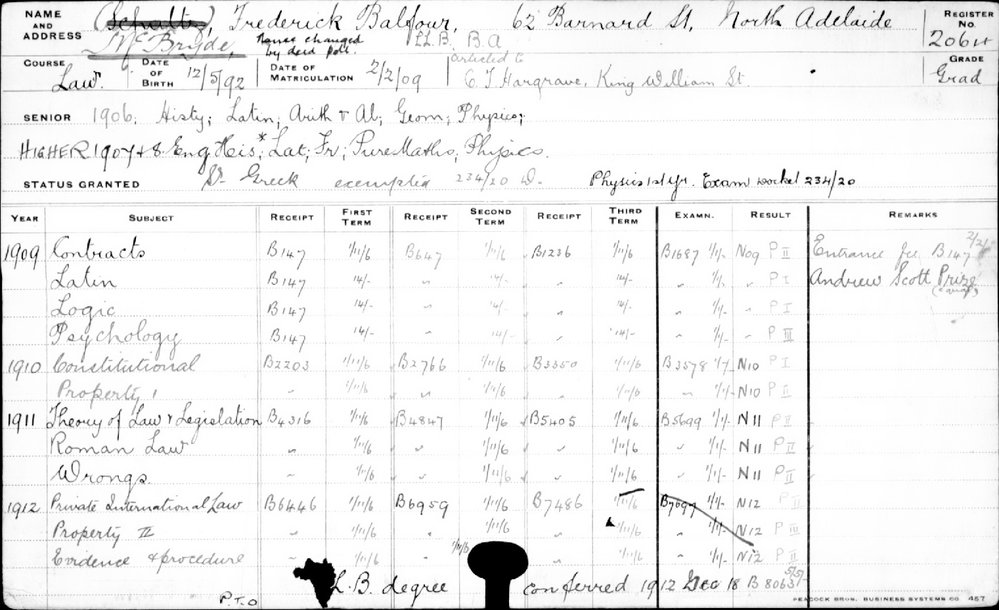 NAME AND ADDRESS (Schultz) Frederick Balfour, 62 Barnard St, North Adelaide REGISTER No 2064
McBryde, Name changed by deed poll. LL.B. B.A
COURSE Law. DATE OF BIRTH 12/5/92 DATE OF MATRICULATION 2/2/09 articled to C T Hargrave, King William St. GRADE Grad
SENIOR 1906. Histy; Latin; Arith & Al; Geom; Physics;
HIGHER 1907 & 8. Eng His*; Lat; Fr; Pure Maths; Physics.
STATUS GRANTED Sr Greek exempted 234/20 D. Physics 1st yr. Exam 234/20
YEAR SUBJECT RECEIPT FIRST TERM RECEIPT SECOND TERM RECEIPT THIRD TERM EXAMN. RESULT REMARKS
1909 Contracts B147 1/11/6 B647 1/11/6 B1236 1/11/6 B1687 1/1/- N09 P II Entrance fee B147 2/2/-
Latin B147 14/- " 14/- " 14/- " 1/- " P I Andrew Scott Prize
Logic B147 14/- " 14/- " 14/- " 1/- " P I
Psychology B147 14/- " 14/- " 14/- " 1/- " P III
1910 Constitutional B2203 1/11/6 B2766 1/11/6 B3350 1/11/6 B3578 1/1/- N10 P I
Property I " 1/11/6 " 1/11/6 " 1/11/6 " 1/1/- N10 P II
1911 Theory of Law & Legislation B4316 1/11/6 B4847 1/11/6 B5405 1/11/6 B5699 1/1/- N11 P II
Roman Law " 1/11/6 " 1/11/6 " 1/11/6 " 1/1/- N11 P II
Wrongs " 1/11/6 " 1/11/6 " 1/11/6 " 1/1/- N11 P II
1912 Private International Law B6446 1/11/6 B6959 1/11/6 B7486 1/11/6 B7697 1/1/- N12 P II
Property II " 1/11/6 " 1/11/6 " 1/11/6 " 1/1/- N12 P III
Evidence & procedure " 1/11/6 " 1/11/6 1/11/6 " 1/1/- N12 P II
L.B. degree conferred 1912 Dec 18 B 8063 5/5/-
P.T.O
PEACOCK BROS. BUSINESS SYSTEMS CO. 457